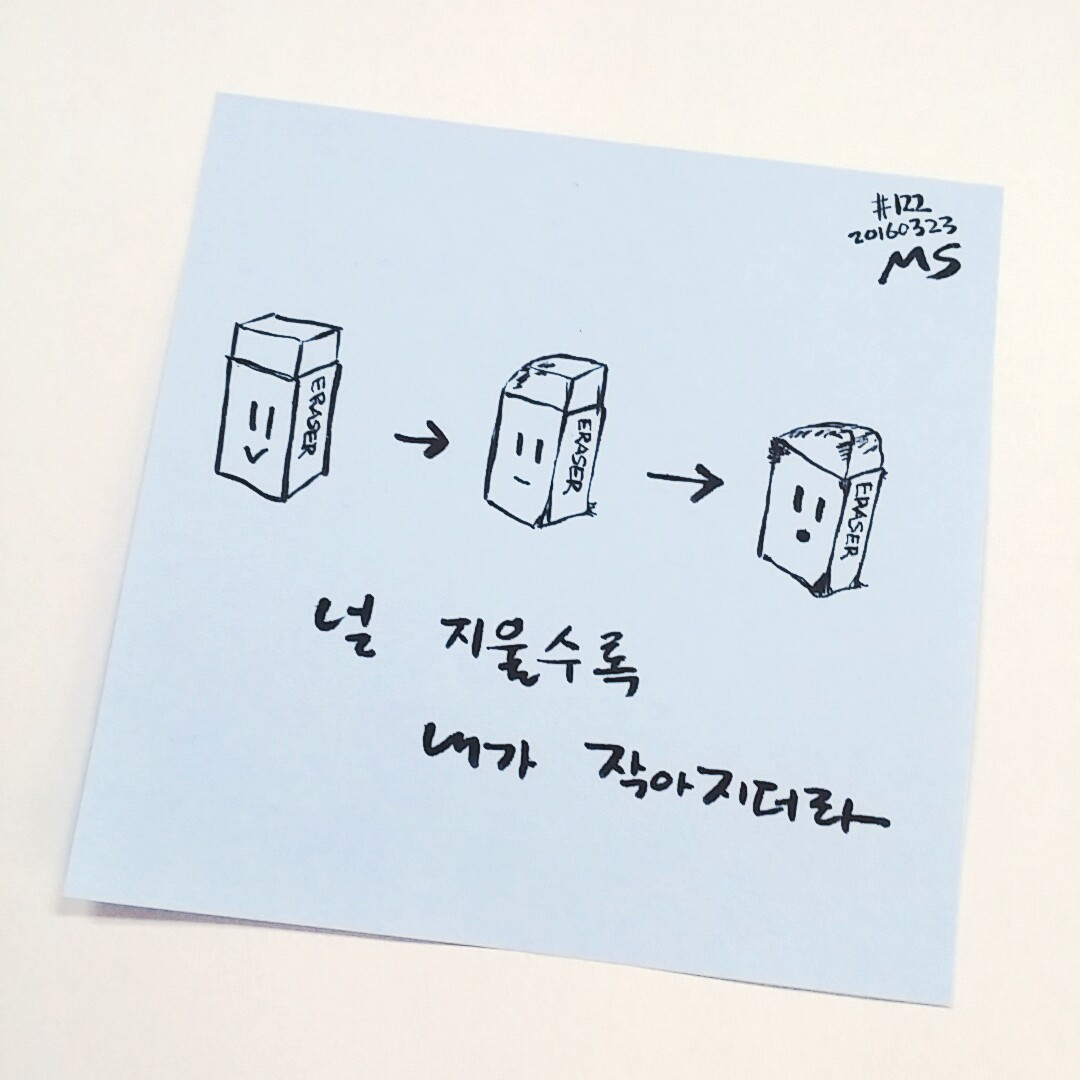 #122
20160323
MS
ERASER
ERASER
ERASER
널 지울수록
내가 작아지더라